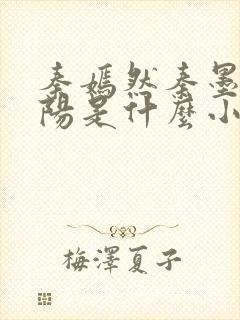 秦嫣然秦墨
陽是什麼小
梅澤夏子